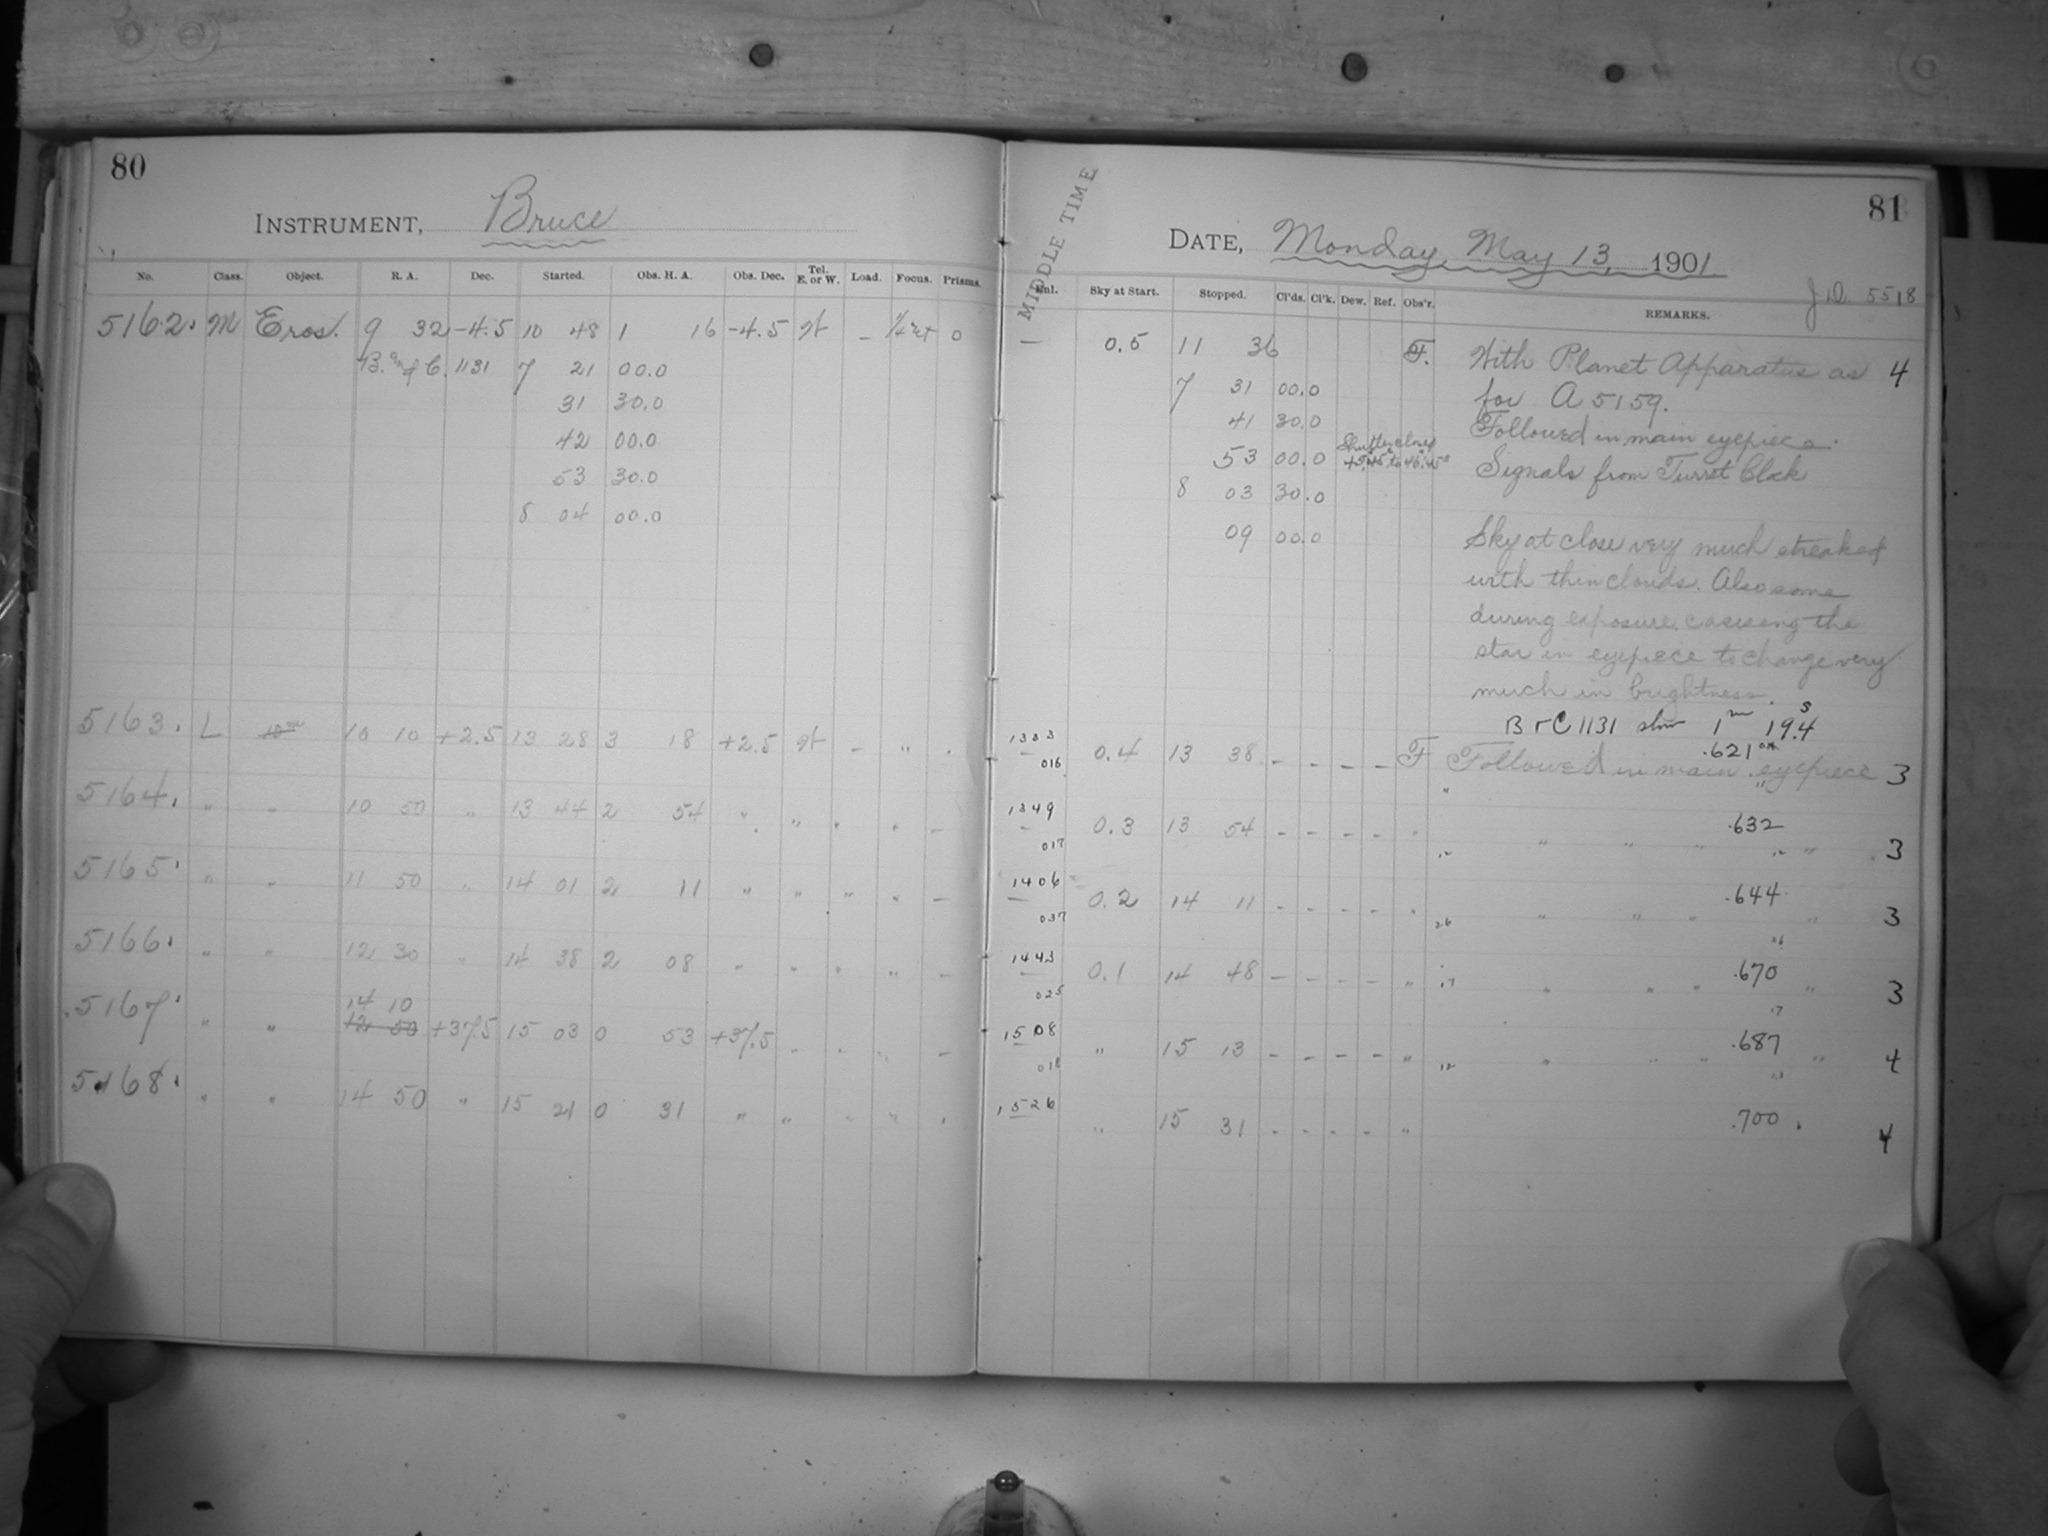 80
INSTRUMENT, Bruce
No. Class. Object. R. A. Dec. Started. Obs. H. A. Obs. Dec. Tel. E. or W. Load. Focus. Prisms.
5162. M Eros. 9 32 -4.5 10 48 1 16 -4.5 — 0
B. and C. 1131 7 21 00.0
31 30.0
42 00.0
53 30.0
8 04 00.0
5163. L 10 10 +2.5 13 28 3 18 +2.5 — "
5164. " " 10 50 " 13 44 2 54 " "
5165. " " 11 50 " 14 01 2 11 " " " " —
5166. " " 12 30 " 14 38 2 08 " " " " —
14 10
5167. " " 12 50 +37.5 15 03 0 53 +37.5 " " " —
5168. " " 14 50 " 15 21 0 31 " " " "
MIDDLE TIME
81
DATE, Monday, May 13, 1901
J.D. 5518
Enl. Sky at Start. Stopped. Cl'ds. Cl'k. Dew. Ref. Obs'r. REMARKS.
— 0.5 11 36 F. With Planet Apparatus as 4
7 31 00.0 for A 5159.
41 30.0 Followed in main eyepiece.
Shutter closed
53 00.0 Signals from Turret Clock
8 03 30.0
09 00.0 Sky at close very much streaked
with thin clouds. Also some
during exposure causing the
star in eyepiece to change very
much in brightness.
B & C 1131 slow 1m 19.4s
1333 .621
016 0.4 13 38 — — — — F Followed in main eyepiece 3
1349 0.3 13 54 — — — — " " " " .632 " 3
017
1406 0.2 14 11 — — — — " " " " .644 " 3
037
1443 0.1 14 48 — — — — " " " " .670 " 3
025
1508 " 15 13 — — — — " " " " .687 " 4
018
1526 " 15 31 — — — — " .700 4